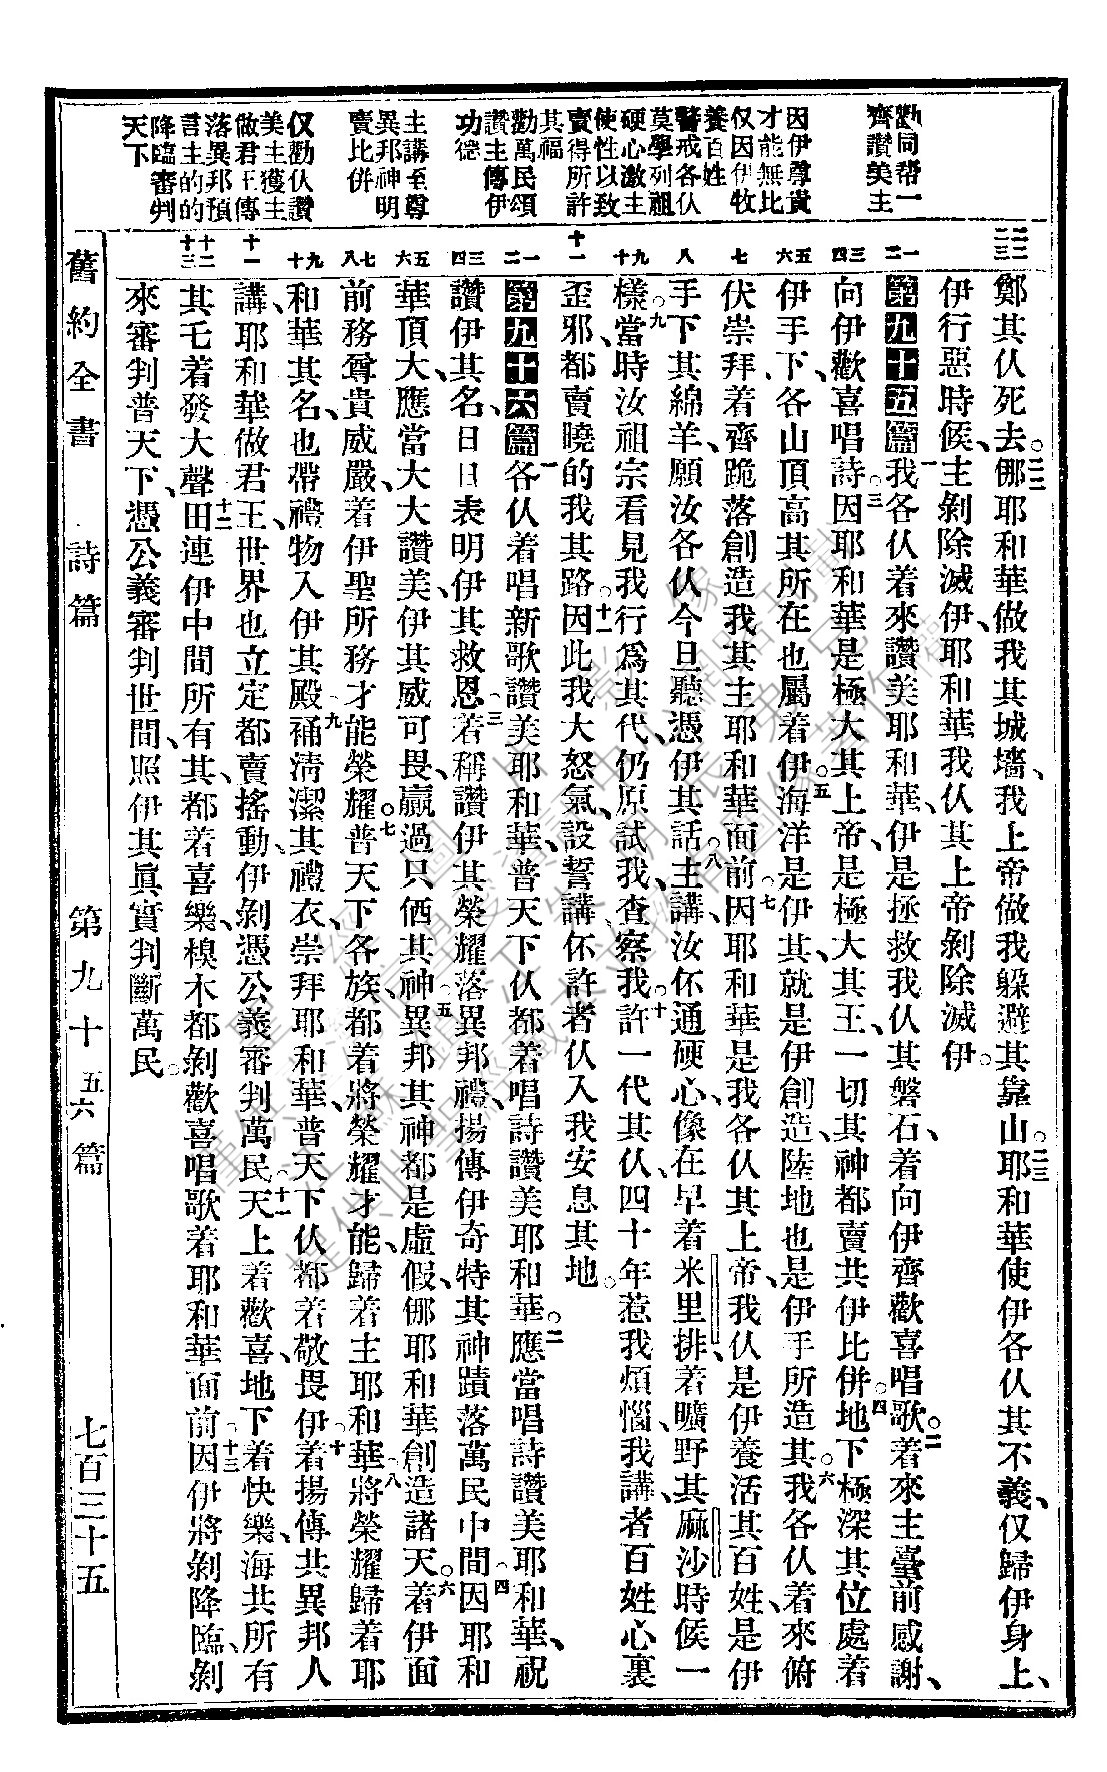 勸同帮一
齊讚美主
因伊尊貴
才能無比
仅因伊牧
養百姓
警戒各仅
莫學列祖
硬心激主
使性以致
賣得所許
其福
勸萬民頌
讚主傳伊
功德
主講至尊
異邦神明
賣比併
仅勸仅讚
美主獲主
做君王傳
落異邦預
言主的的
降臨審判
天下
鄭其仅死去。二二㑚耶和華做我其城墻、我上帝做我躲避其靠山。二三耶和華使伊各仅其不義、仅歸伊身上、
伊行惡時候、主剝除滅伊、耶和華我仅其上帝剝除滅伊。
第九十五篇 一我各仅着來讚美耶和華、伊是拯救我仅其磐石、着向伊齊歡喜唱歌。二着來主臺前感謝、
向伊歡喜唱詩。三因耶和華是極大其上帝、是極大其王、一切其神都賣共伊比併。四地下極深其位處着
伊手下、各山頂高其所在也屬着伊。五海洋是伊其、就是伊創造、陸地也是伊手所造其。六我各仅着來俯
伏崇拜、着齊跪落創造我其主耶和華面前。七因耶和華是我各仅其上帝、我仅是伊養活其百姓、是伊
手下其綿羊、願汝各仅今旦聽憑伊其話。八主講、汝伓通硬心、像在早着米里排、着曠野其麻沙時候一
樣。九當時汝祖宗看見我行爲其代、仍原試我、查察我。十許一代其仅、四十年惹我煩惱、我講、者百姓心裏
歪邪、都賣曉的我其路。十一因此我大怒氣、設誓講、伓許者仅入我安息其地。
第九十六篇 一各仅着唱新歌讚美耶和華、普天下仅都着唱詩讚美耶和華。二應當唱詩讚美耶和華、祝
讚伊其名、日日表明伊其救恩。三着稱讚伊其榮耀落異邦禮、揚傳伊奇特其神蹟落萬民中間。四因耶和
華頂大、應當大大讚美、伊其威可畏、贏過只㑚其神。五異邦其神都是虛假、㑚耶和華創造諸天。六着伊面
前務尊貴威嚴、着伊聖所務才能榮耀。七普天下各族、都着將榮耀才能、歸着主耶和華。八將榮耀歸着耶
和華其名、也帶禮物入伊其殿。九裲淸潔其禮衣、崇拜耶和華、普天下仅都着敬畏伊。十着揚傳共異邦人
講、耶和華做君王、世界也立定都賣搖動、伊剝憑公義審判萬民。十一天上着歡喜、地下着快樂、海共所有
其乇着發大聲。十二田連伊中間所有其、都着喜樂、樹木都剝歡喜唱歌。十三着耶和華面前、因伊將剝降臨、剝
來審判普天下、憑公義審判世間、照伊其眞實判斷萬民。
舊約全書 詩篇 第九十五六篇 七百三十五